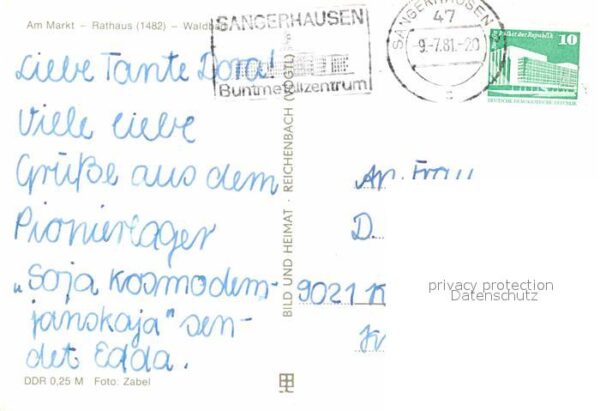 Am Markt - Rathaus (1482) -
SANGERHAUSEN
Buntmetallzentrum
SANGERHAUSEN
47
-9.-7.81.-20
c
Palast der Republik 10
DEUTSCHE DEMOKRATISCHE REPUBLIK
Liebe Tante Dora!
Viele liebe
Grüße aus dem
Pionierlager
„Soja Kosmodem-
janskaja" sen-
det Edda.
DDR 0,25 M Foto: Zabel
BILD UND HEIMAT · REICHENBACH (VOGTL)
An Frau
D.
9021 K
privacy protection
Datenschutz